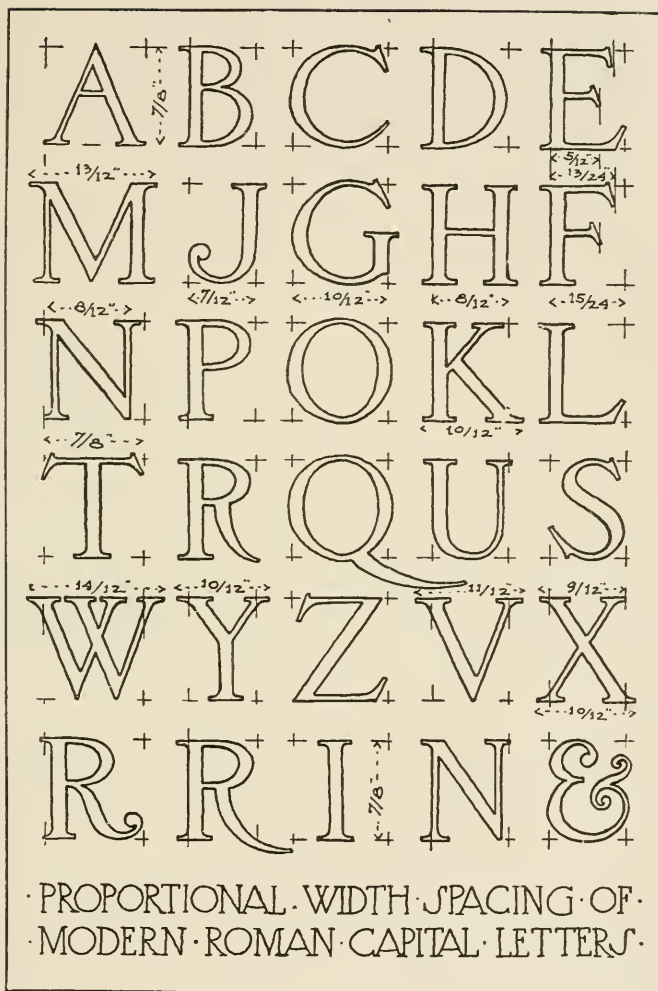 A B C D E
7/8"
5/12"
13/12" 13/24"
M J G H F
7/12" 10/12" 8/12" 15/24
8/12"
N P O K L
7/8" 10/12"
T R Q U S
14/12" 10/12" 11/12" 9/12"
W Y Z V X
10/12"
R R I N &
7/8"
·PROPORTIONAL·WIDTH·SPACING·OF·
·MODERN·ROMAN·CAPITAL·LETTERS·